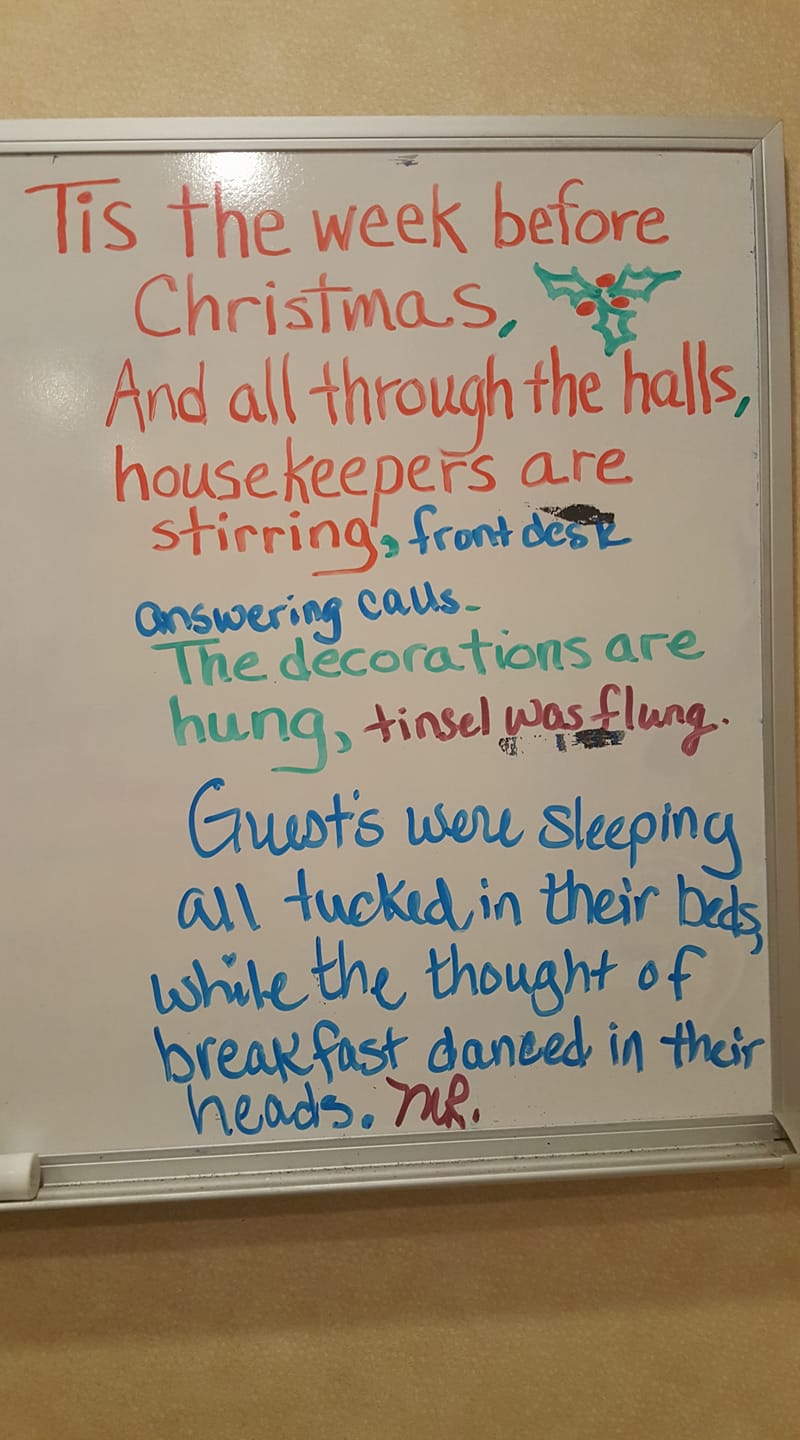 Tis the week before
Christmas,
And all through the halls,
housekeepers are
stirring, front desk
answering calls.
The decorations are
hung, tinsel was flung.
Guest's were sleeping
all tucked in their beds,
while the thought of
breakfast danced in their
heads. MR.